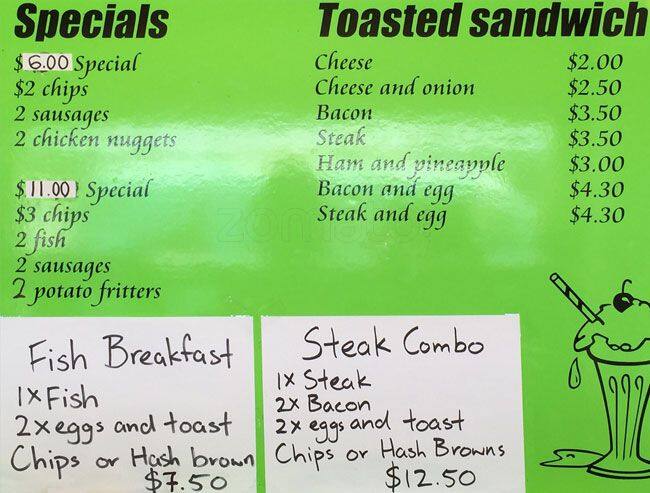 Specials
$6.00 Special
$2 chips
2 sausages
2 chicken nuggets
$11.00 Special
$3 chips
2 fish
2 sausages
2 potato fritters
Toasted sandwich
Cheese $2.00
Cheese and onion $2.50
Bacon $3.50
Steak $3.50
Ham and pineapple $3.00
Bacon and egg $4.30
Steak and egg $4.30
Fish Breakfast
1x Fish
2x eggs and toast
Chips or Hash brown
$7.50
Steak Combo
1x Steak
2x Bacon
2x eggs and toast
Chips or Hash Browns
$12.50